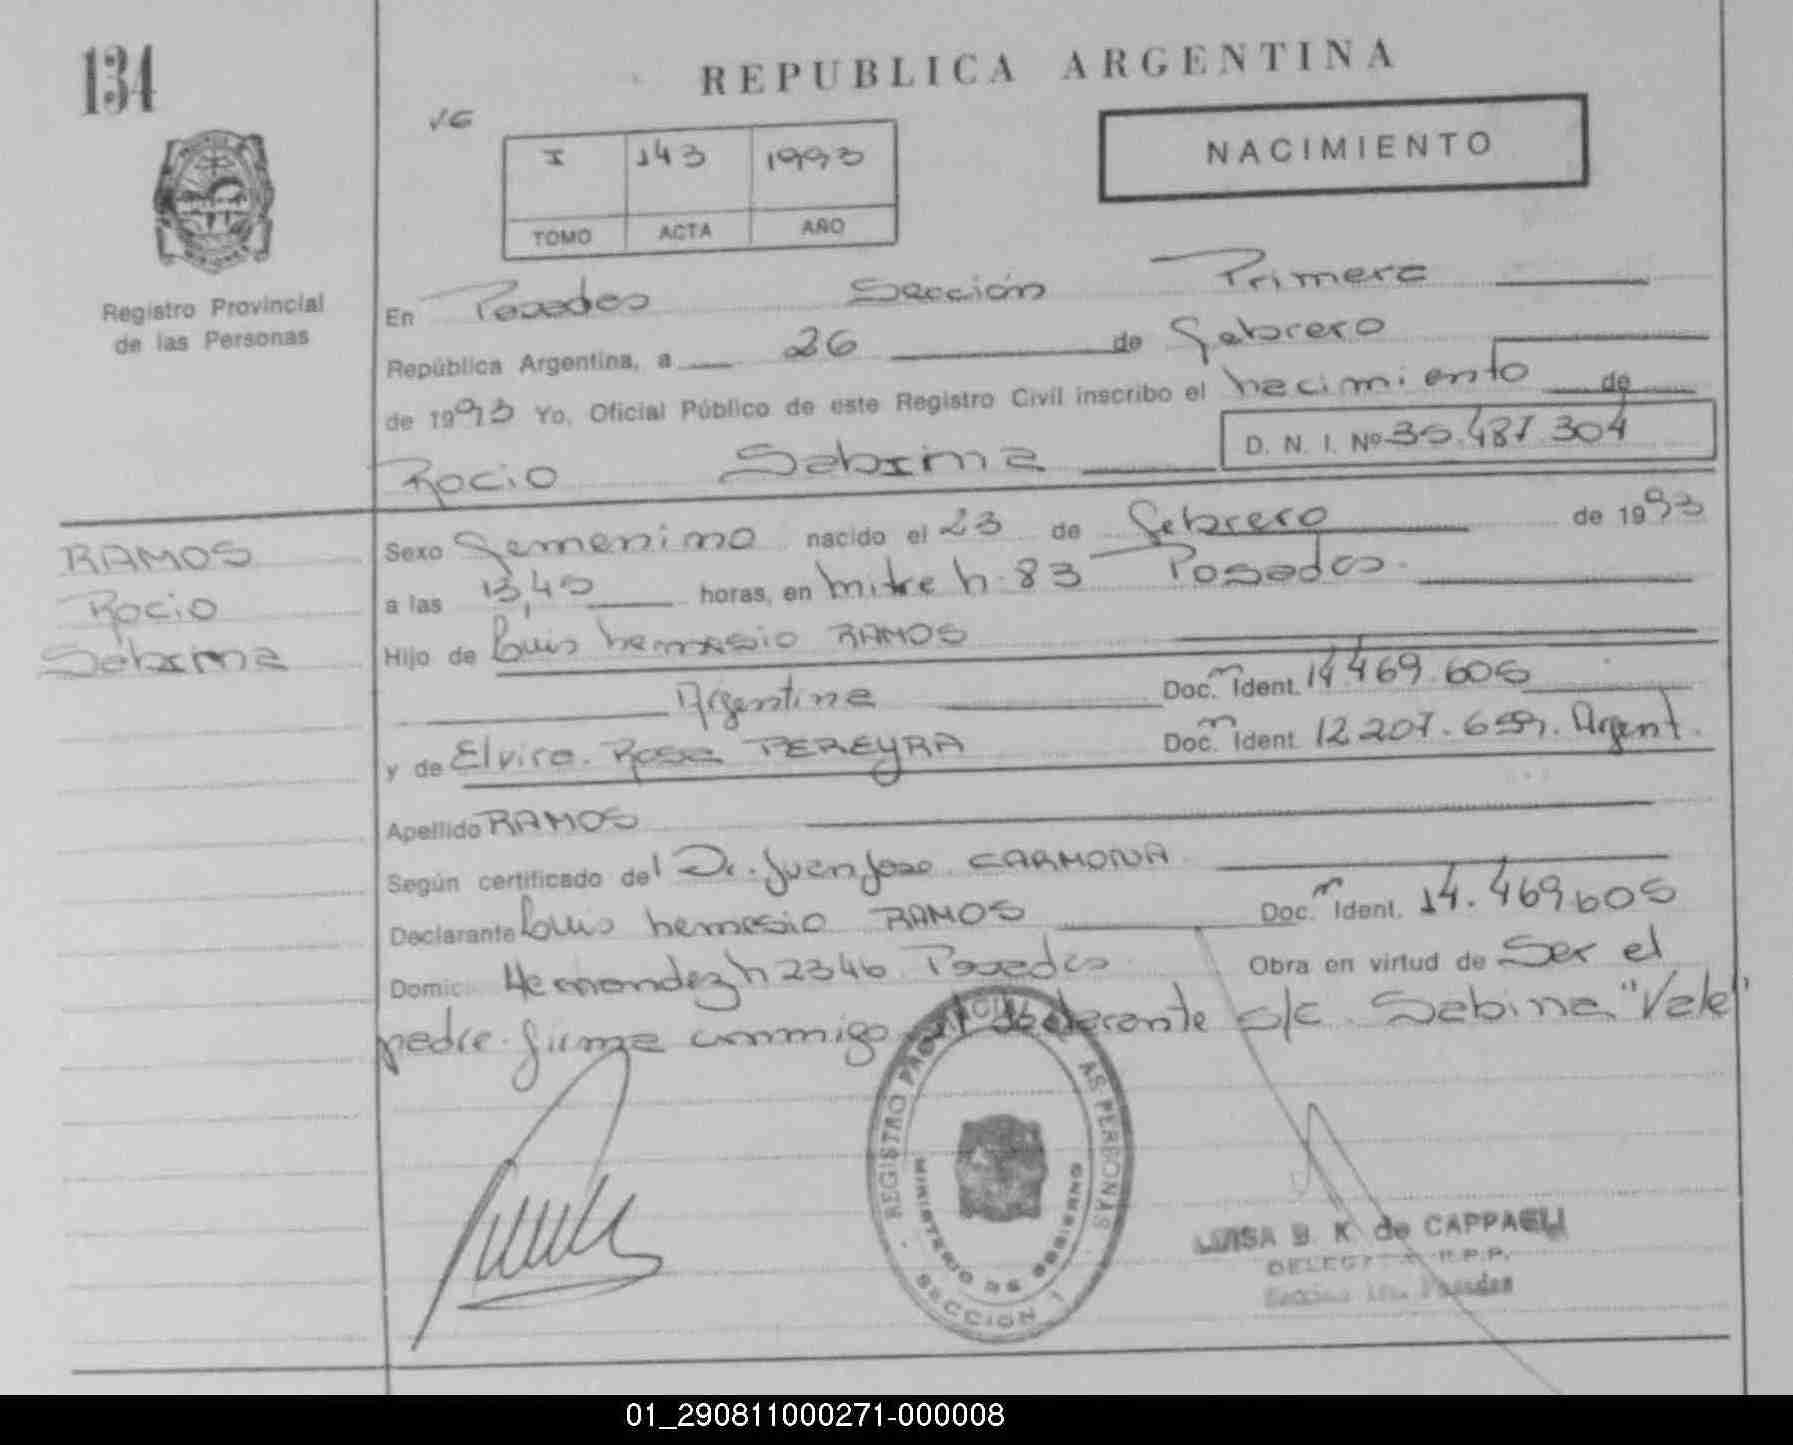 134
REPUBLICA ARGENTINA
NACIMIENTO
I 143 1993
TOMO ACTA AÑO
Registro Provincial
de las Personas
En Posadas Sección Primera
República Argentina, a 26 de Febrero
de 1993 Yo, Oficial Público de este Registro Civil inscribo el nacimiento de
D. N. I. Nº 35.487.304
Rocio Sabrina
RAMOS
Rocio
Sabrina
Sexo Femenino nacido el 23 de Febrero de 1993
a las 13,45 horas, en Mitre n. 83 Posadas.
Hijo de Luis Nemesio RAMOS
Argentina Doc. Ident. 14.469.605
y de Elvira Rosa PEREYRA Doc. Ident. 12.207.659. Argent.
Apellido RAMOS
Según certificado del Dr. Juan Jose CARMONA
Declarante Luis Nemesio RAMOS Doc. Ident. 14.469.605
Domic. Hernandez n 2346 Posadas Obra en virtud de Ser el
padre. firma conmigo el declarante s/c. Sabina "Vale"
REGISTRO PROVINCIAL DE LAS PERSONAS
MINISTERIO DE GOBIERNO
SECCION 1
LUISA B. K. de CAPPAELLI
DELEGADA R.P.P.
Sección 1ra. Posadas
01_290811000271-000008